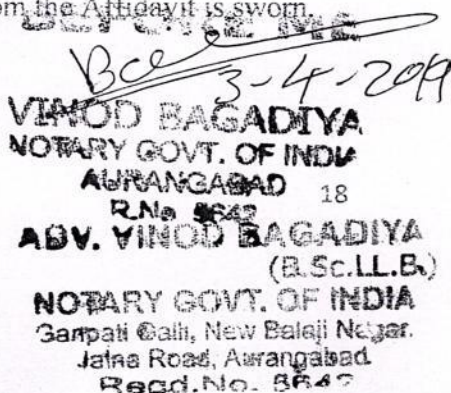 om the Affidavit is sworn.
BEFORE ME
3-4-2019
VINOD BAGADIYA
NOTARY GOVT. OF INDIA
AURANGABAD
18
R.No 5642
ADV. VINOD BAGADIYA
(B.Sc.LL.B.)
NOTARY GOVT. OF INDIA
Ganpati Galli, New Balaji Nagar.
Jalna Road, Aurangabad.
Regd. No. 5642